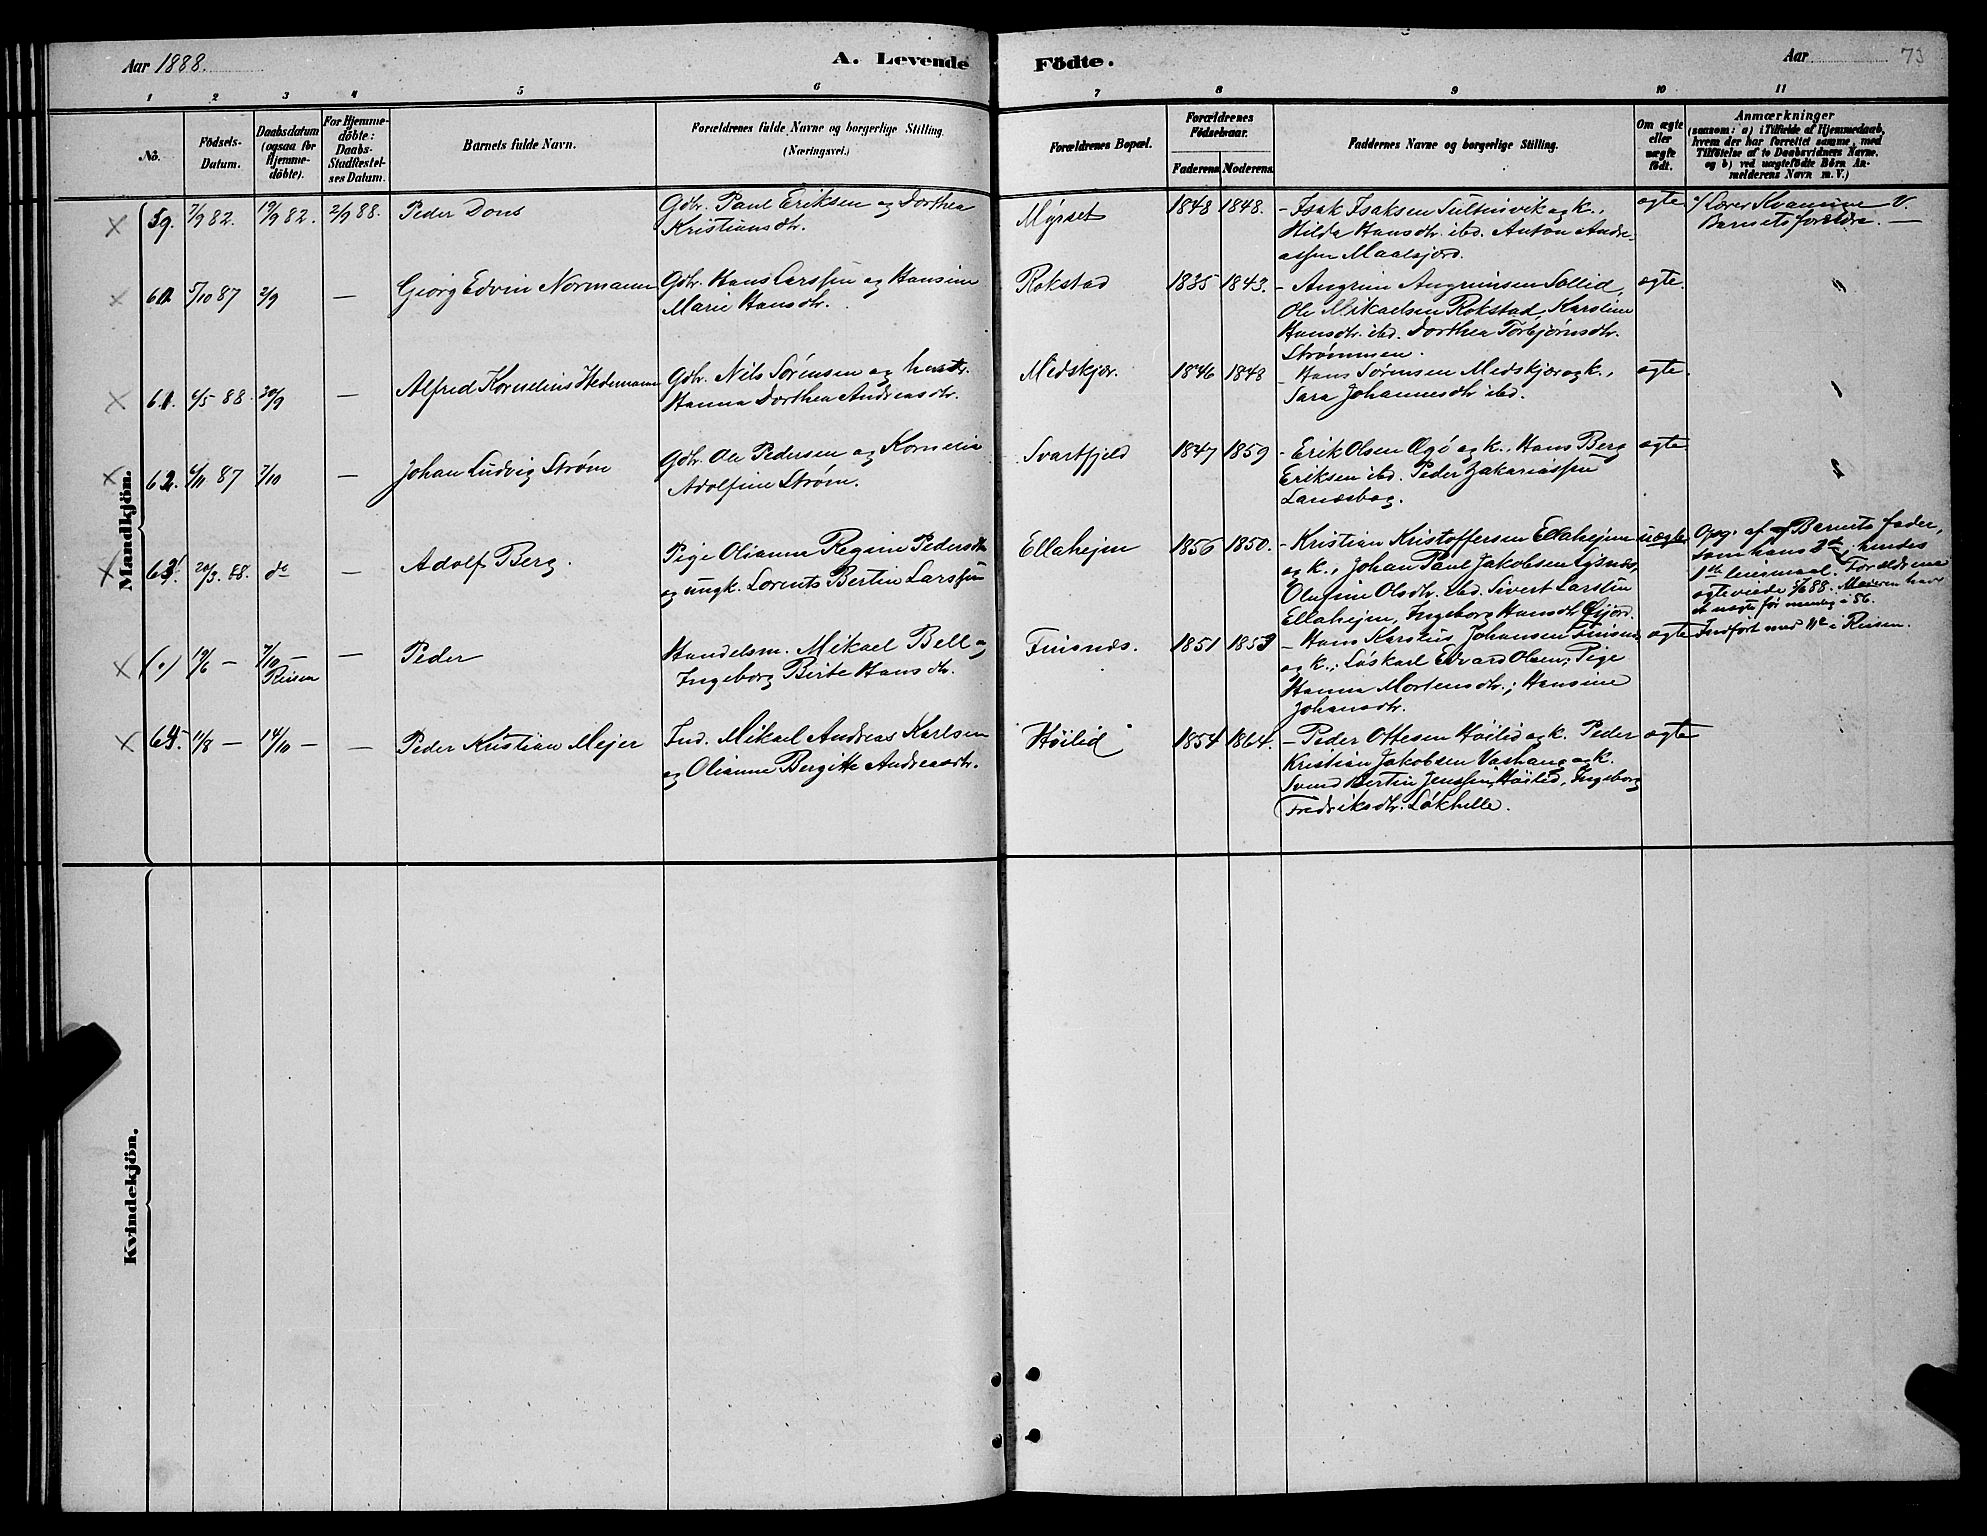 Aar 1888.
A. Levende Födte.
Aar
73
1 2 3 4 5 6 7 8 9 10 11
No.
Födsels-Datum.
Daabsdatum (ogsaa for Hjemme-døbte).
For Hjemme-døbte: Daabs-Stadfæstel-ses Datum.
Barnets fulde Navn.
Forældrenes fulde Navne og borgerlige Stilling.
(Næringsvei.)
Forældrenes Bopæl.
Forældrenes Födselsaar.
Faderens. Moderens.
Faddernes Navne og borgerlige Stilling.
Om ægte eller uægte födt.
Anmærkninger
(saasom: a) i Tilfælde af Hjemmedaab, hvem der har forrettet samme, med Tilföielse af to Daabsvidners Navne, og b) ved uægtefödte Börn An-melderens Navn m. V.)
Mandkjön.
59. 7/9 82. 19/9 82. 2/9 88. Peder Dons
Gdbr. Paul Eriksen og Dorthea
Kristiansdtr.
Myrset 1848 1848.
- Isak Isaksen Sultinvik og k.,
Hilda Hansdtr. ibd. Anton Andre-
assen Maalsjord.
ægte
Lærer Kvamme V.
Barnets forældre. —
60. 5/10 87 2/9 — Georg Edvin Normann
Gdbr. Hans Larssen og Hansine
Marie Hansdtr.
Rokstad 1835 1843.
- Angrim Angrimsen Sollid,
Ole Mikaelsen Rokstad, Karoline
Hansdtr. ibd. Dorthea Torbjørnsdtr.
Strømmen.
ægte. "
61. 6/5 88. 30/9 — Alfred Kornelius Hedemann
Gdbr. Nils Sørensen og hustr.
Hanna Dorthea Andreasdtr.
Medskjær. 1846 1848
- Hans Sørensen Medskjær og k.,
Sara Johannesdtr ibd.
ægte.
62. 6/11 87 7/10 — Johan Ludvig Strøm
Gdbr. Ole Pedersen og Kornelia
Adolfine Strøm.
Svartfjeld 1847 1859
- Erik Olsen Øgø og k., Hans Berg
Eriksen ibd. Peder Zakariassen
ægte "
63. 20/3. 88. do — Adolf Berg.
Pige Olianna Regine Pedersdtr
og ungk. Lorents Bertin Larssen
Ellahejen 1856 1850.
- Kristian Kristoffersen Ellahejen
og k., Johan Paul Jakobsen Lysnes,
Olufine Olsdtr. ibd. Sivert Larssen
Ellahejen, Ingeborg Hansdtr
uægte
Opg. af Barnets fader,
som hans 3die, hendes
1ste leiermaal. Forældrene
ægteviede 88. Moderen havt
et uægte før
(.) 19/6 — 7/10 — Reisen — Peder
Handelsm. Mikael Bell og
Ingeborg Birte Hansdtr.
Finsnes. 1851 1853
- Hans Karelius Johansen Finsnes
og k.; Løskarl Edvard Olsen; Pige
Hanna Mortensdtr.; Hansine
Johansdtr.
ægte
Indført med No i Reisen.
64. 11/8 — 14/10 — — Peder Kristian Mejer
Ind. Mikael Andreas Karlsen
og Olianna Bergitte Andreasdtr.
Høilid 1854 1864.
- Peder Ottesen Høilid og k. Peder
Kristian Jakobsen Vashaug og k.
Svend Bertin Jenssen, Høilid, Ingeborg
Fredriksdtr. Løkhelle.
ægte
Kvindekjön.